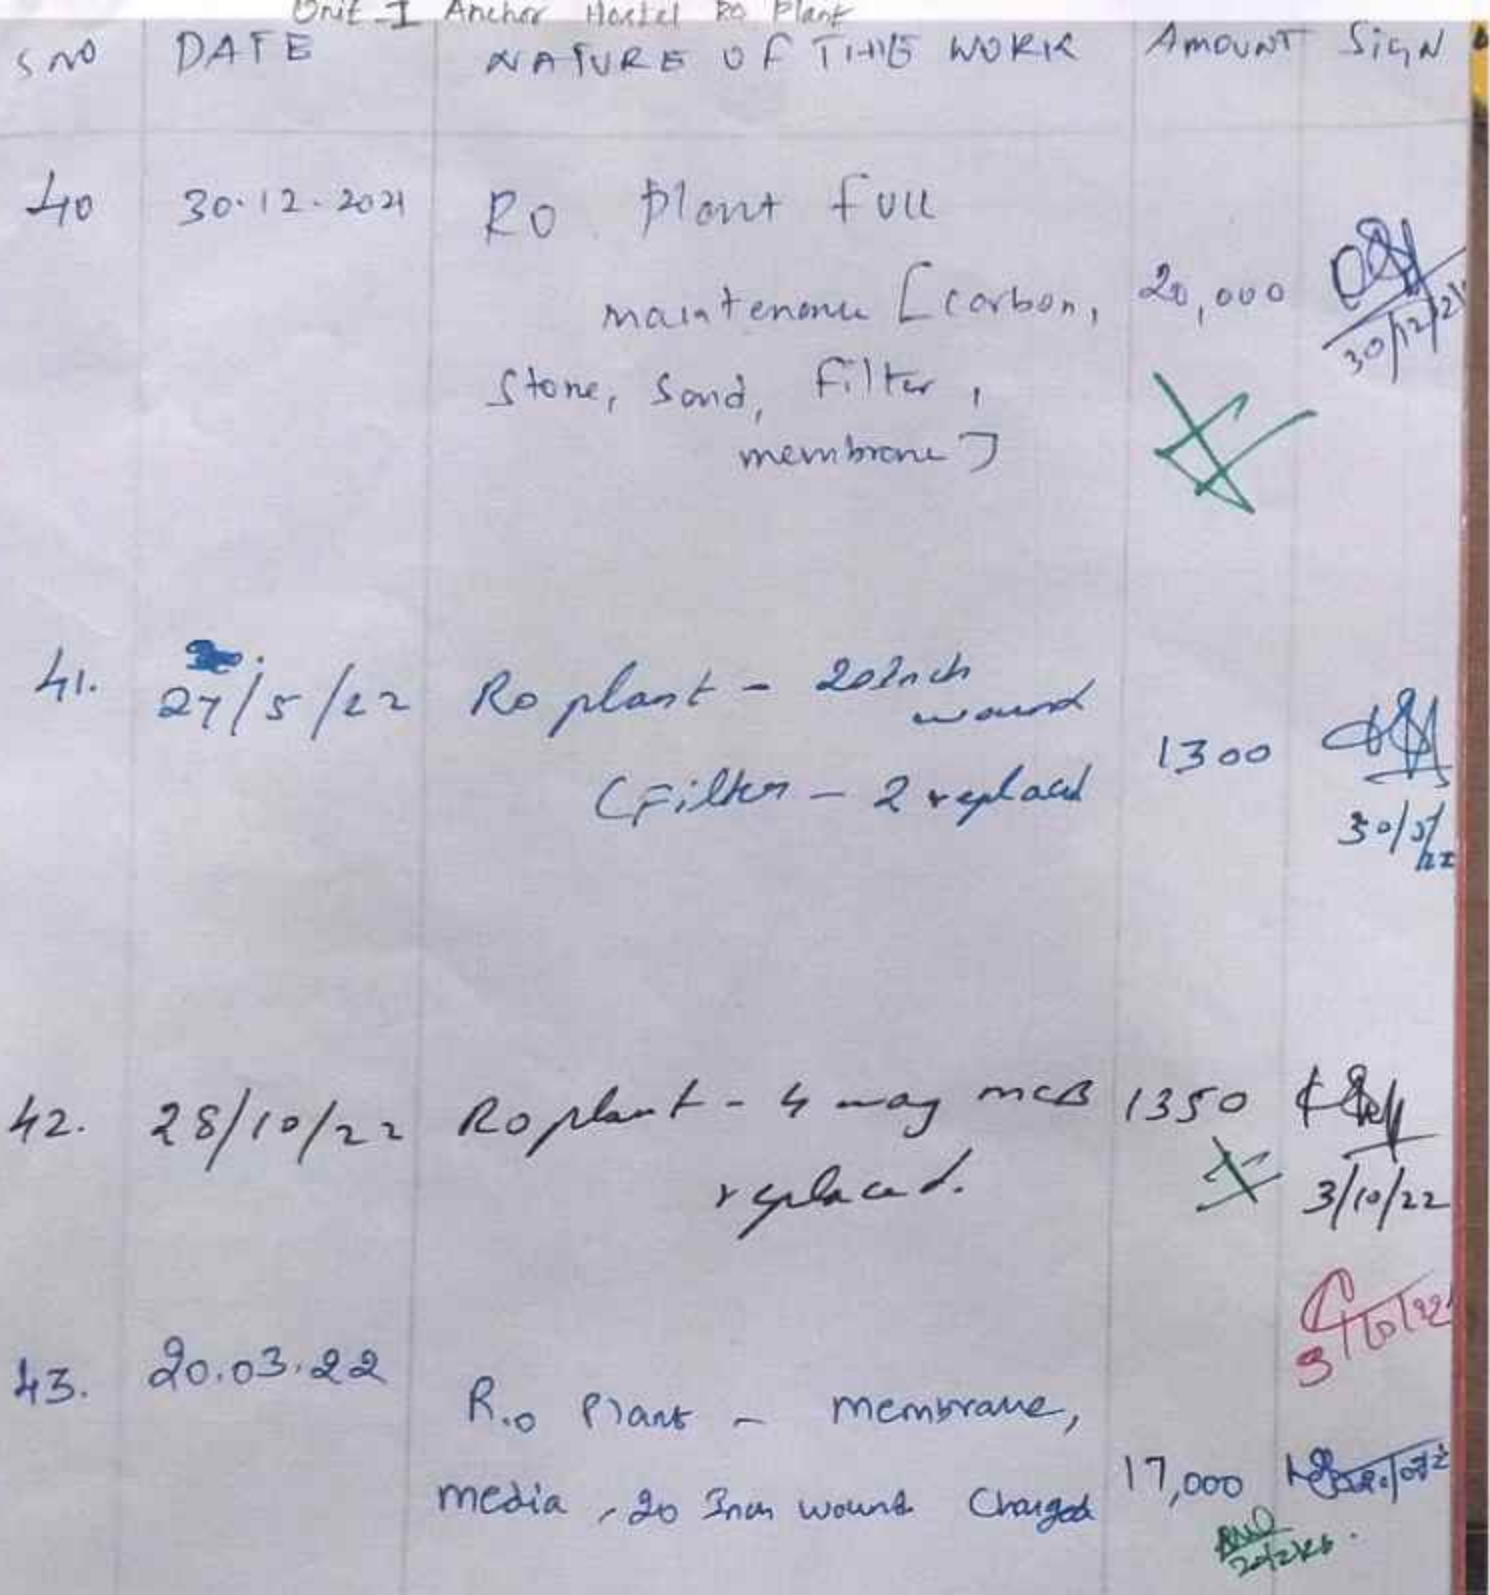 Unit I Anchor Hostel RO Plant
S NO DATE NATURE OF THE WORK AMOUNT SIGN
40 30.12.2021 RO Plant full
maintenance [carbon, 20,000
30/12/21
stone, sand, filter,
membrane]
41. 27/5/22 Ro plant - 20 Inch
wound
1300
(Filter - 2 replaced
30/5/22
42. 28/10/22 Ro plant - 4 way MCB 1350
replaced.
3/10/22
3/10/22
43. 20.03.22
R.o Plant - membrane,
media, 20 Inch wound Changed 17,000